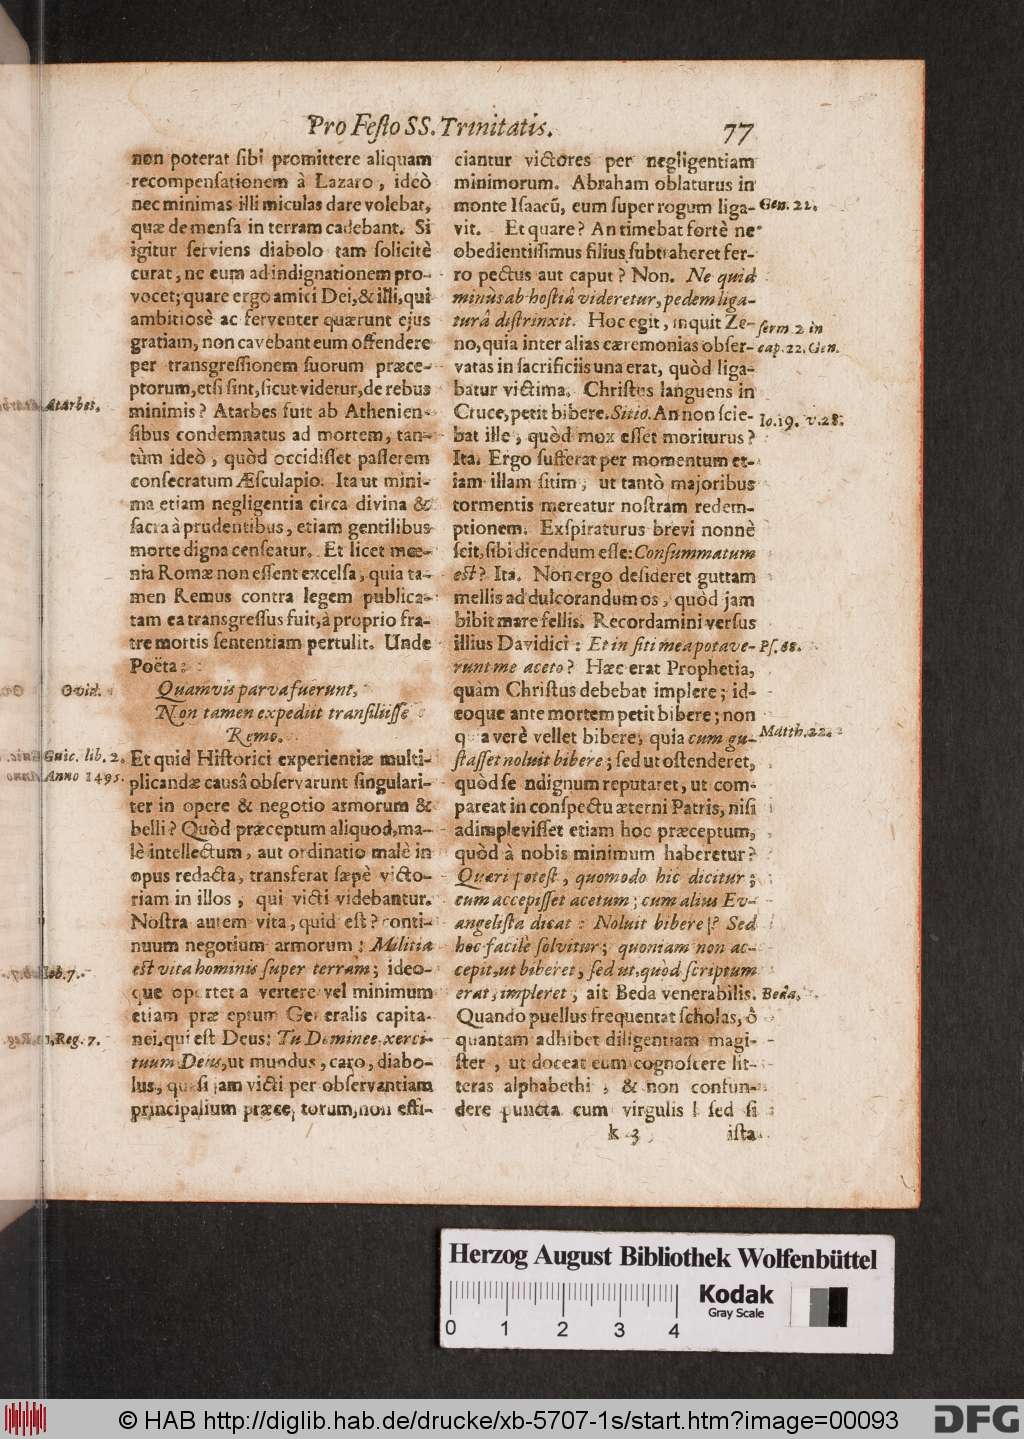 Pro Festo SS. Trinitatis. 77
non poterat sibi promittere aliquam
recompensationem à Lazaro, ideò
nec minimas illi miculas dare volebat,
quæ de mensa in terram cadebant. Si
igitur serviens diabolo tam solicitè
curat, ne eum ad indignationem pro-
vocet; quare ergo amici Dei, & illi, qui
ambitiosè ac ferventer quærunt ejus
gratiam, non cavebant eum offendere
per transgressionem suorum præce-
ptorum, etsi sint, sicut videtur, de rebus
minimis? Atarbes fuit ab Athenien-
sibus condemnatus ad mortem, tan-
tùm ideò, quòd occidisset passerem
consecratum Æsculapio. Ita ut mini-
ma etiam negligentia circa divina &
sacra à prudentibus, etiam gentilibus
morte digna censeatur. Et licet mœ-
nia Romæ non essent excelsa, quia ta-
men Remus contra legem publica-
tam ea transgressus fuit, à proprio fra-
tre mortis sententiam pertulit. Unde
Poëta:
Quamvis parva fuerunt,
Non tamen expediit transiliisse
Remo.
Et quid Historici experientiæ multi-
plicandæ causâ observarunt singulari-
ter in opere & negotio armorum &
belli? Quòd præceptum aliquod, ma-
lè intellectum, aut ordinatio malè in
opus redacta, transferat sæpè victo-
riam in illos, qui victi videbantur.
Nostra autem vita, quid est? conti-
nuum negotium armorum: Militia
est vita hominis super terram; ideo-
que oportet a vertere vel minimum
etiam præ eptum Generalis capita-
nei, qui est Deus: Tu Domine exerci-
tuum Deus, ut mundus, caro, diabo-
lus, quasi jam victi per observantiam
principalium præceptorum, non effi-
Atarbes.
Ovid.
Guic. lib. 2.
Anno 1495.
Iob. 7.
1. Reg. 7.
ciantur victores per negligentiam
minimorum. Abraham oblaturus in
monte Isaacū, eum super rogum liga-
vit. Et quare? An timebat fortè ne
obedientissimus filius subtraheret fer-
ro pectus aut caput? Non. Ne quid
minùs ab hostiâ videretur, pedem liga-
turâ distrinxit. Hoc egit, inquit Ze-
no, quia inter alias cæremonias obser-
vatas in sacrificiis una erat, quòd liga-
batur victima. Christus languens in
Cruce, petit bibere. Sitio. An non scie-
bat ille, quòd mox esset moriturus?
Ita. Ergo sufferat per momentum et-
iam illam sitim, ut tantò majoribus
tormentis mereatur nostram redem-
ptionem. Exspiraturus brevi nonnè
scit, sibi dicendum esse: Consummatum
est? Ita. Non ergo desideret guttam
mellis ad dulcorandum os, quòd jam
bibit mare fellis. Recordamini versus
illius Davidici: Et in siti mea potave-
runt me aceto? Hæc erat Prophetia,
quàm Christus debebat implere; id-
eoque ante mortem petit bibere; non
q a verè vellet bibere, quia cum gu-
stasset noluit bibere; sed ut ostenderet,
quòd se ndignum reputaret, ut com-
pareat in conspectu æterni Patris, nisi
adimplevisset etiam hoc præceptum,
quòd à nobis minimum haberetur?
Quæri potest, quomodo hic dicitur;
cum accepisset acetum; cum alius Ev-
angelista dicat: Noluit bibere? Sed
hoc facilè solvitur; quoniam non ac-
cepit, ut biberet, sed ut, quod scriptum
erat, impleret, ait Beda venerabilis.
Quando puellus frequentat scholas, ô
quantam adhibet diligentiam magi-
ster, ut doceat eum cognoscere lit-
teras alphabethi, & non confun-
dere puncta cum virgulis! sed si
Gen. 22.
serm 2 in
cap. 22. Gen.
Io. 19. v. 28.
Ps. 68.
Matth. 22.
Beda.
k 3 ista
Herzog August Bibliothek Wolfenbüttel
0 1 2 3 4
Kodak
Gray Scale
© HAB http://diglib.hab.de/drucke/xb-5707-1s/start.htm?image=00093
DFG